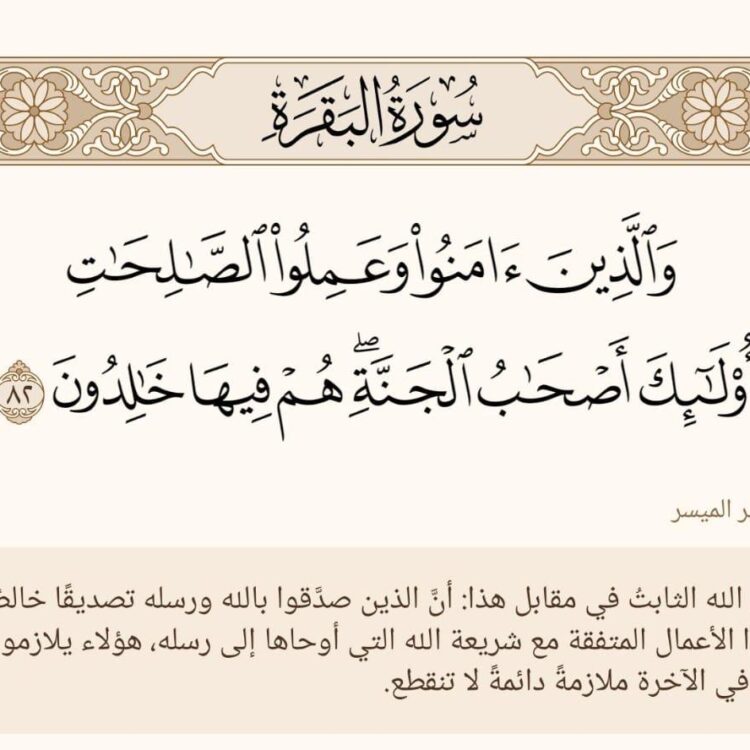 سُورَةُ البَقَرَةِ
وَٱلَّذِينَ ءَامَنُوا۟ وَعَمِلُوا۟ ٱلصَّـٰلِحَـٰتِ
أُو۟لَـٰٓئِكَ أَصْحَـٰبُ ٱلْجَنَّةِ ۖ هُمْ فِيهَا خَـٰلِدُونَ ٨٢
الميسر
الله الثابتُ في مقابل هذا: أنَّ الذين صدَّقوا بالله ورسله تصديقًا
الأعمال المتفقة مع شريعة الله التي أوحاها إلى رسله، هؤلاء
في الآخرة ملازمةً دائمةً لا تنقطع.